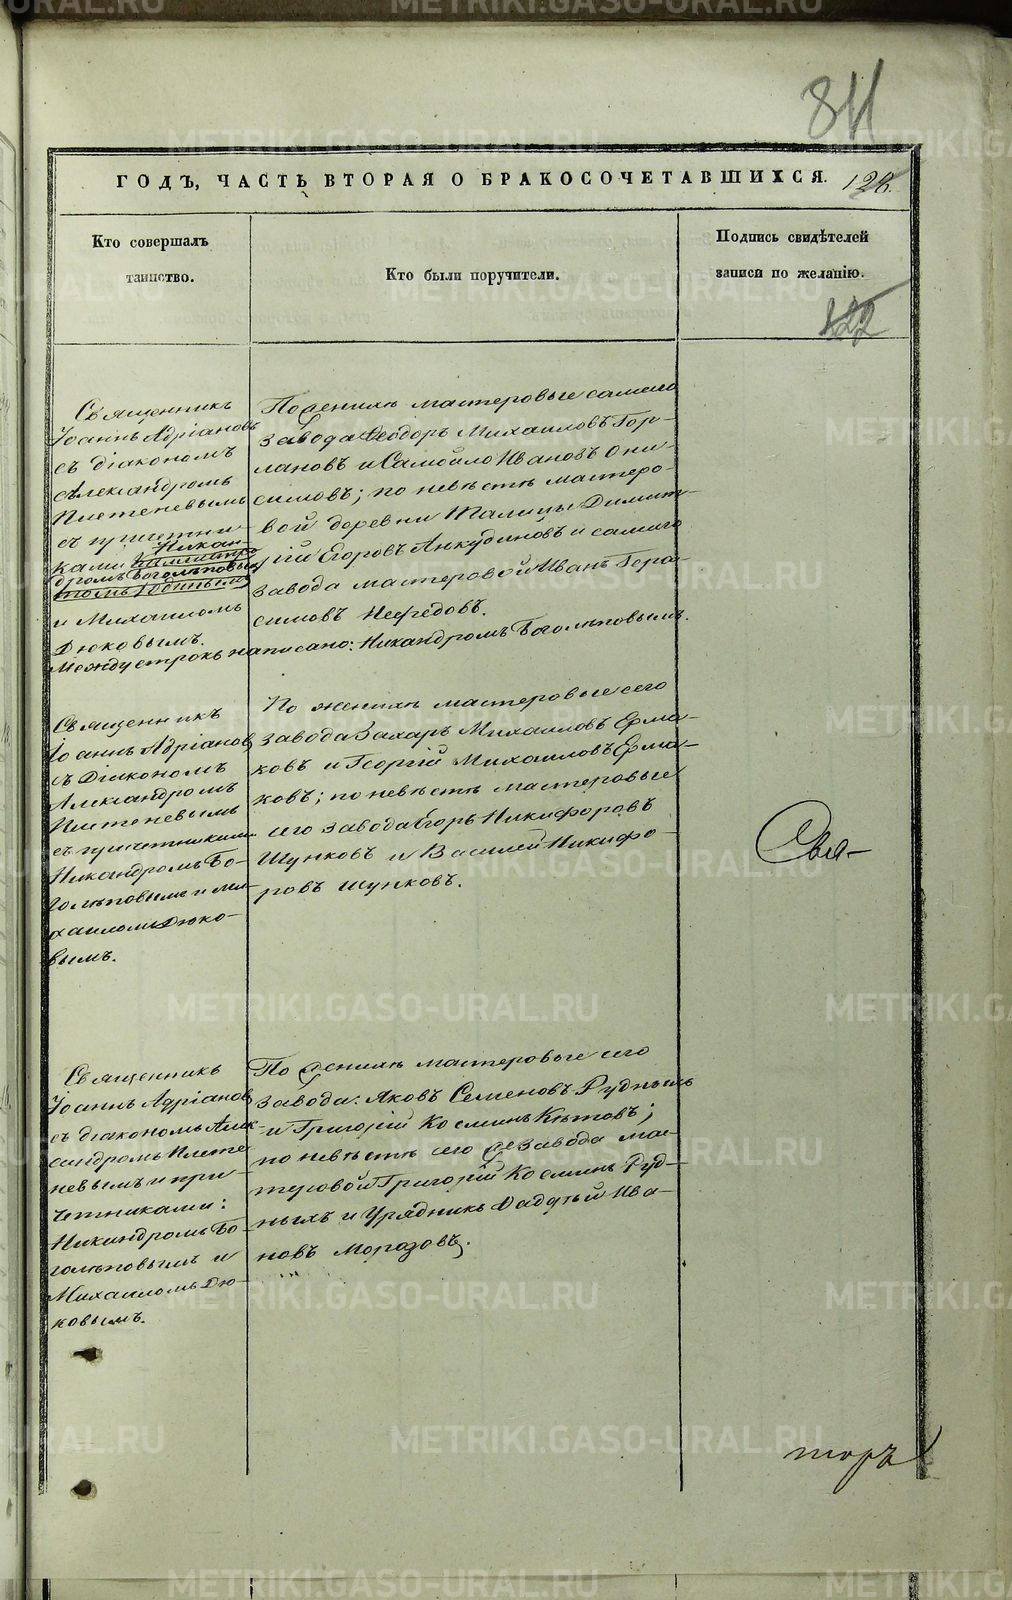 811
ГОДЪ, ЧАСТЬ ВТОРАЯ О БРАКОСОЧЕТАВШИХСЯ.
Кто совершалъ
таинство.
Кто были поручители.
Подпись свидѣтелей
записи по желанію.
122
Священникъ
Іоаннъ Адріановъ
съ діакономъ
Александромъ
Плетеневымъ
съ причетни-
ками Никан-
дромъ Боголѣповы
и Михаиломъ
Дюковымъ.
Между строкъ написано: Никандромъ Боголѣповымъ.
По женихѣ мастеровые самаго
завода Ѳеодоръ Михаиловъ Гор-
лановъ и Самойло Ивановъ Они-
симовъ; по невѣстѣ мастеро-
вой деревни Талицы Димит-
рій Егоровъ Анкудиновъ и самаго
завода мастеровой Иванъ Гера-
симовъ Нефедовъ.
Священникъ
Іоаннъ Адріановъ
съ Діакономъ
Александромъ
Плетеневымъ
съ причетниками
Никандромъ Бо-
голѣповымъ и Ми-
хаиломъ Дюко-
вымъ.
По женихѣ мастеровые сего
завода Захаръ Михаиловъ Ерма-
ковъ и Георгій Михаиловъ Ерма-
ковъ; по невѣстѣ мастеровые
сего завода Егоръ Никифоровъ
Шунковъ и Василей Никифо-
ровъ Шунковъ.
Свя-
Священникъ
Іоаннъ Адріановъ
съ діакономъ Алек-
сандромъ Плете-
невымъ и при
четниками:
Никандромъ Бо-
голѣповымъ и
Михаиломъ Дю-
ковымъ.
По женихѣ мастеровые сего
завода: Яковъ Семеновъ Рудныхъ
и Григорій Косминъ Кѣтовъ;
по невѣстѣ сего же завода мас-
теровой Григорій Косминъ Руд-
ныхъ и Урядникъ Фадѣй Ива-
новъ Морозовъ.
торъ
METRIKI.GASO-URAL.RU